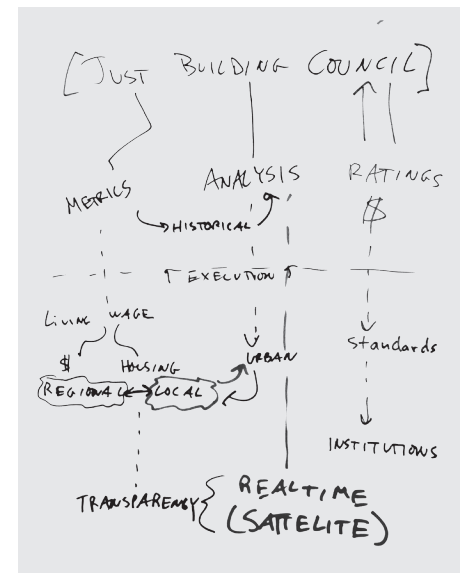 [JUST BUILDING COUNCIL]
METRICS
ANALYSIS
RATINGS
HISTORICAL
$
EXECUTION
Living WAGE
$
HOUSING
REGIONAL
LOCAL
URBAN
Standards
INSTITUTIONS
TRANSPARENCY {
REALTIME
(SATTELITE)